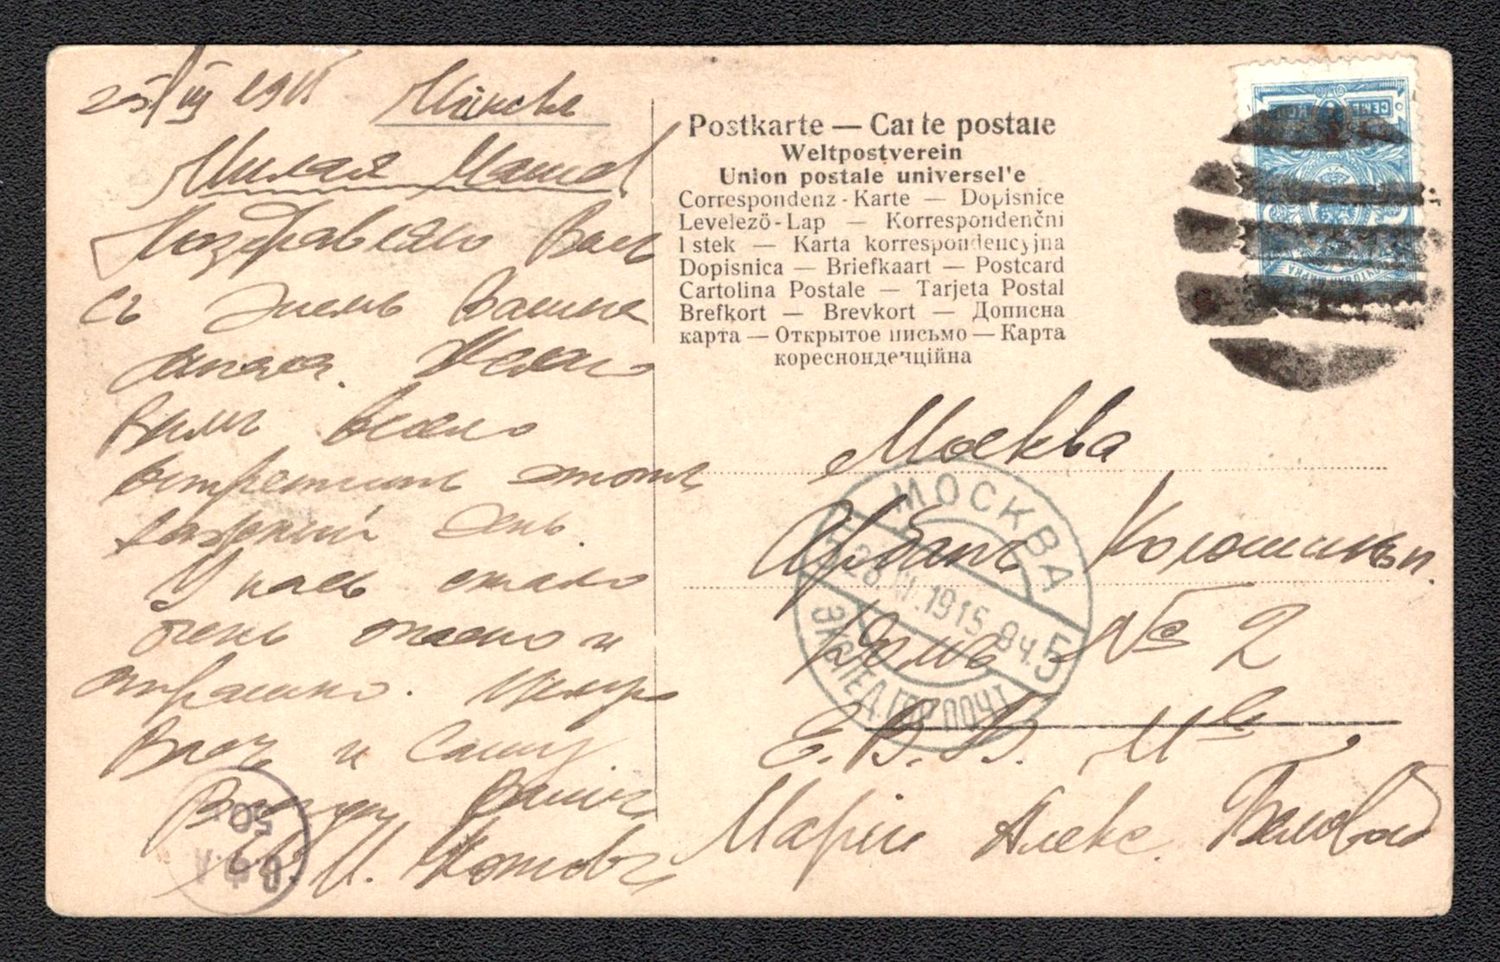 25/III 1915 Минскъ
Милая Маша!
Поздравляю Васъ
съ днемъ Вашего
ангела. Желаю
Вамъ весело
встретить этотъ
день.
У насъ стало
очень опасно и
страшно. Целую
Васъ и Сашу.
Вашъ
И. Котовъ
Postkarte — Carte postale
Weltpostverein
Union postale universel'e
Correspondenz - Karte — Dopisnice
Levelező - Lap — Korrespondenční
lístek — Karta korrespondencyjna
Dopisnica — Briefkaart — Postcard
Cartolina Postale — Tarjeta Postal
Brefkort — Brevkort — Дописна
карта — Открытое письмо — Карта
кореспонденційна
СЕМЬ
Москва
Арбатъ Колошинъ п.
домъ № 2
Е. В. Б. М-lle
Маріи Алекс. Беловой
МОСКВА
28.III.1915 8Ч. 5
ЭКСПЕД. ГОР. ПОЧТ
50